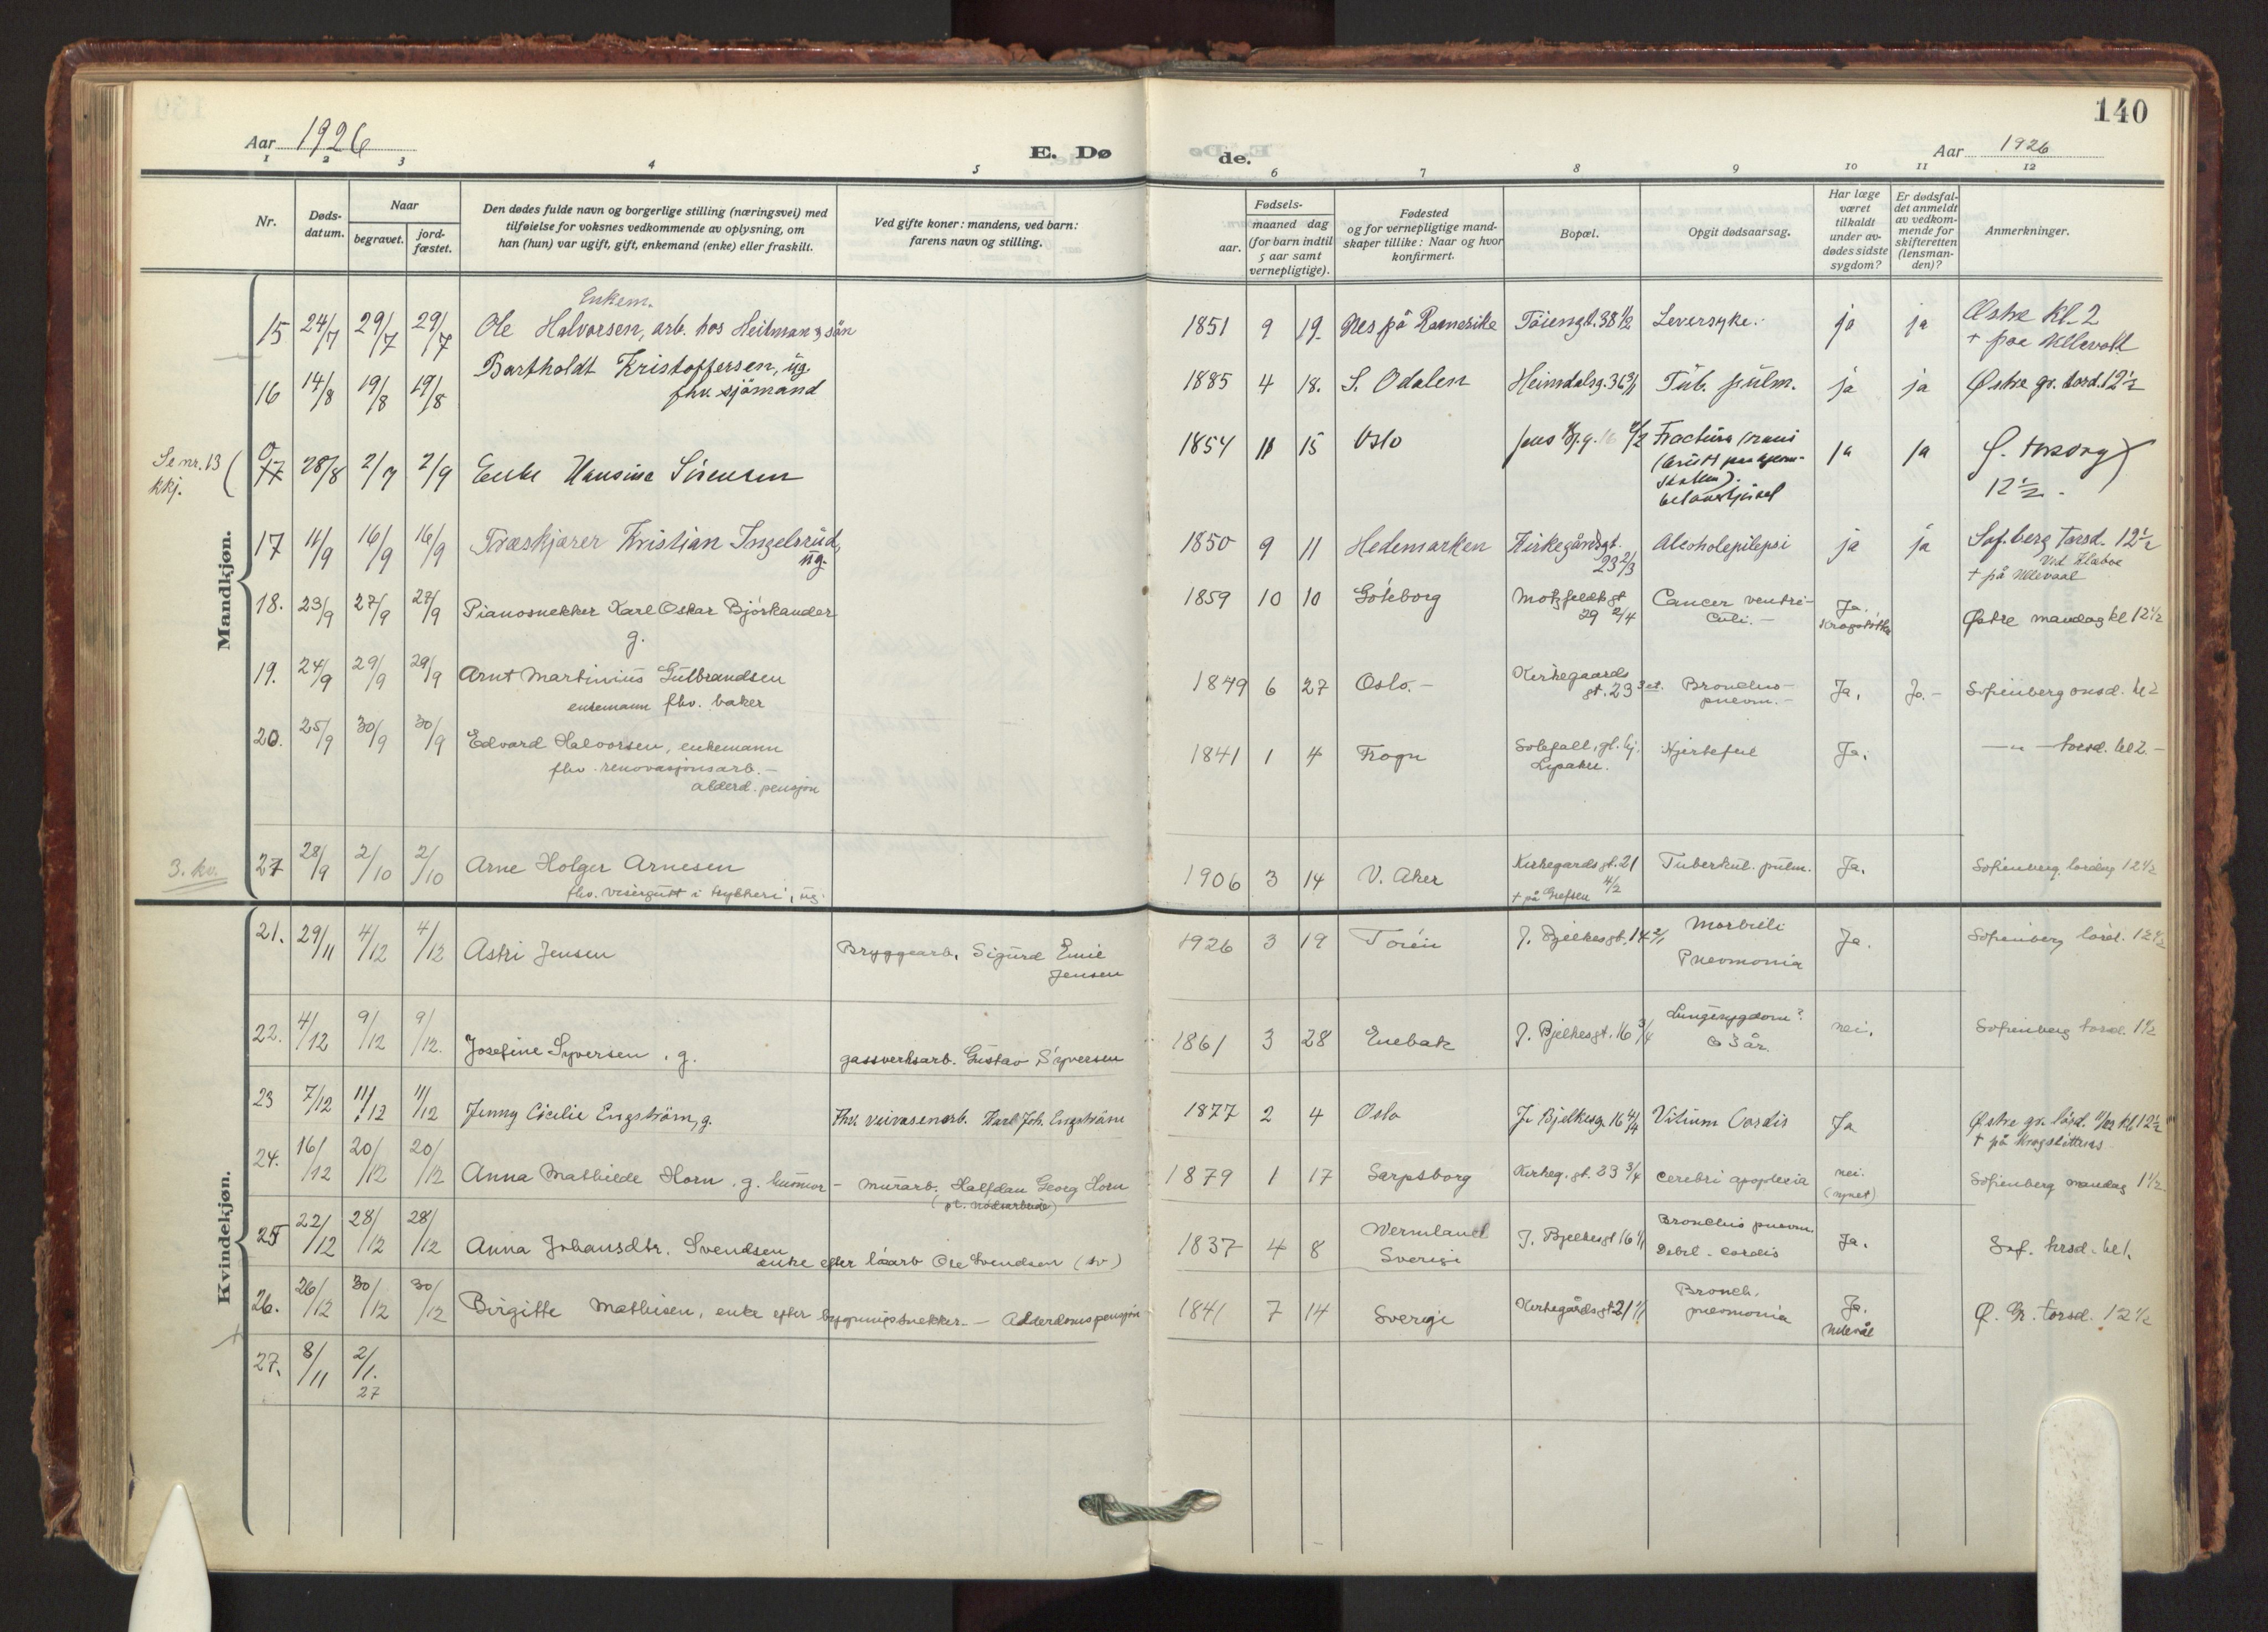 140
Aar 1926
E. Dø
de.
Aar 1926
1 2 3 4 5 6 7 8 9 10 11 12
Nr.
Døds-
datum.
Naar
begravet.
jord-
fæstet.
Den dødes fulde navn og borgerlige stilling (næringsvei) med
tilføielse for voksnes vedkommende av oplysning, om
han (hun) var ugift, gift, enkemand (enke) eller fraskilt.
Ved gifte koner: mandens, ved barn:
farens navn og stilling.
Fødsels-
aar.
maaned dag
(for barn indtil
5 aar samt
vernepligtige).
Fødested
og for vernepligtige mand-
skaper tillike: Naar og hvor
konfirmert.
Bopæl.
Opgit dødsaarsag.
Har læge
været
tilkaldt
under av-
dødes sidste
sygdom?
Er dødsfal-
det anmeldt
av vedkom-
mende for
skifteretten
(lensman-
den)?
Anmerkninger.
Mandkjøn.
Enkem.
15 24/7 29/7 29/7 Ole Halvorsen, arb. hos Heitman & sön 1851 9 19 Nes på Romerike Töiengt. 38 1/2 Leversyke. ja ja Østre Kl. 2
+ paa Ullevold
16 14/8 19/8 19/8 Bartholdt Kristoffersen, ug.
fhv. sjömand 1885 4 18. S. Odalen Heimdalsg. 36 Tub. pulm. ja ja Østre gr. tord. 12½
Se nr. 13
kkj.
17 28/8 2/9 2/9 Enke Hansine Sörensen 1854 11 15 Oslo Jens Bj.g. 16 Fractura crani
ja ja 12½.
17 11/9 16/9 16/9 Træskjærer Kristian Ingelsrud,
ug. 1850 9 11 Hedemarken Kirkegårdsgt.
23 2/3 Alcoholepilepsi ja ja Sof.berg Torsd. 12½
+ på Ullevaal
18. 23/9 27/9 27/9 Pianosnekker Karl Oskar Björkander
g. 1859 10 10 Göteborg Motzfeldts gt
29 2/4 Cancer ventri-
culi. Ja.
Krogstötten Østre mandag kl 12½
19. 24/9 29/9 29/9 Arnt Martinius Gulbrandsen
enkemann fhv. baker 1849 6 27 Oslo. Kirkegaards
gt. 23 3 et. Broncho-
pneum. Ja. Ja. Sofienberg onsd. kl 2
20. 25/9 30/9 30/9 Edvard Halvorsen, enkemann
fhv. renovasjonsarb.
alderd. pensjon 1841 1 4 Frogn Solefall, gl. hj.
Hjertefeil Ja. — " — torsd. kl 2
3. kv.
27 28/9 2/10 2/10 Arne Holger Arnesen
fhv. visergutt i trykkeri, ug. 1906 3 14 V. Aker Kirkegards gt. 21
4/2
+ på Grefsen Tuberkul. pulm. Ja. Sofienberg lördag 12½
Kvindekjøn.
21. 29/11 4/12 4/12 Astri Jensen Bryggearb. Sigurd Emil
Jensen 1926 3 19 Töien J. Bjelkesgt. 14 2/1 Morbilli
Pneomonia Ja. Sofienberg lörd. 12½
22. 4/12 9/12 9/12. Josefine Syversen, g. gassverksarb. Gustav Syversen 1861 3 28 Enebak J. Bjelkesgt. 16 3/4 Lungesygdom?
3 år. nei. Sofienberg torsd. 1½
23 7/12 11/12 11/12 Jenny Cicilie Engström, g. Fhv. veivesenarb. Karl Joh. Engström 1877 2 4 Oslo J. Bjelkesg. 16 4/4 Vitium Cordis Ja Østre gr. lörd. 11/12 kl 12½
+ på Krogstöttens
24. 16/12 20/12 20/12 Anna Mathilde Horn. g. husmor - murarb. Halfdan Georg Horn
(pt. nödsarbeide) 1879 1 17 Sarpsborg Kirkeg. gt. 23 3/4 cerebri apoplexia nei.
(synet) Sofienberg mandag 1½
25 22/12 28/12 28/12 Anna Johansdtr. Svendsen
enke efter lösarb Ole Svendsen (sv) 1837 4 8 Wermland
Sverige J. Bjelkesgt 16 1/1 Bronchis pneum.
Debil. cordis Ja. Sof. tirsd. kl 1.
26. 26/12 30/12 30/12 Birgitte Mathisen, enke efter bygningssnekker. — Alderdomspensjon 1841 7 14 Sverige Kirkegårdsgt 21 1/1 Bronch.
pneomonia Ja.
Ullevål Ø. Gr. torsd. 12½
27. 8/11 2/1.
27